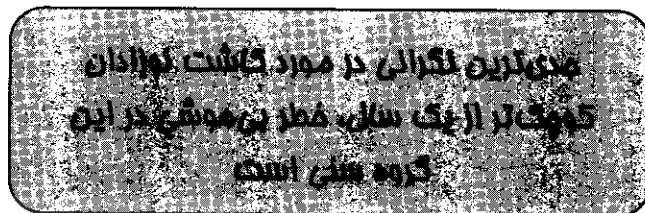 جدی‌ترین نگرانی در مورد کاشت نوزادان
کوچک‌تر از یک سال، خطر بی‌هوشی در این
گروه سنی است